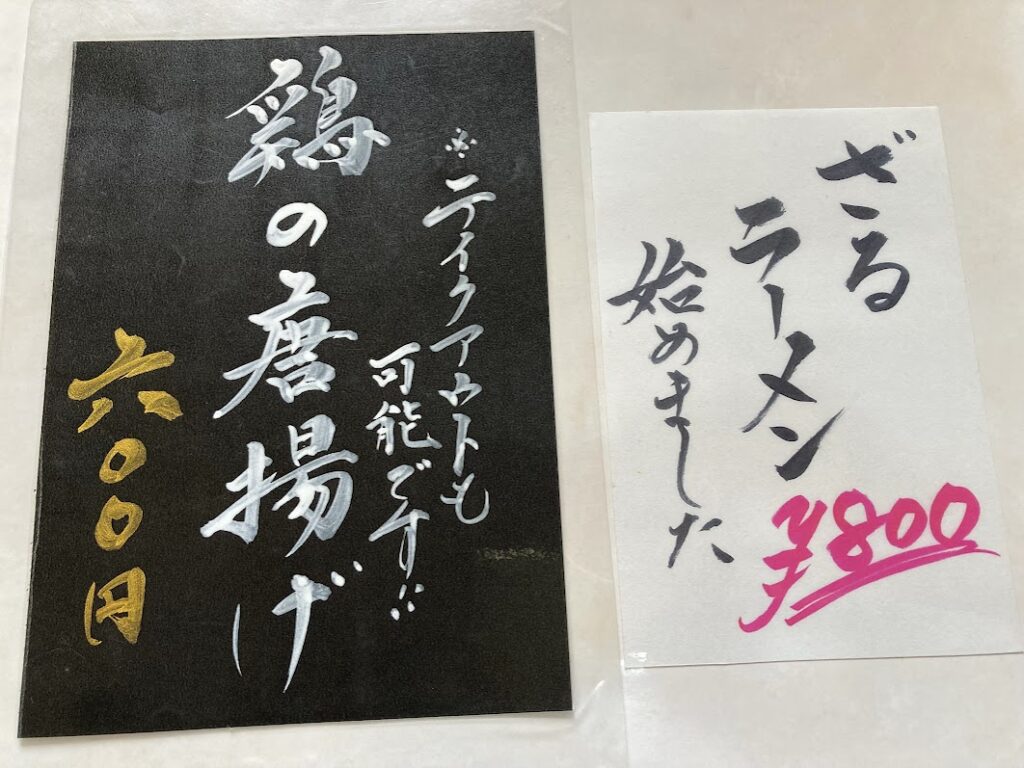 ※テイクアウトも
可能です!!
鶏の唐揚げ
六〇〇円
ざる
ラーメン
始めました
¥800